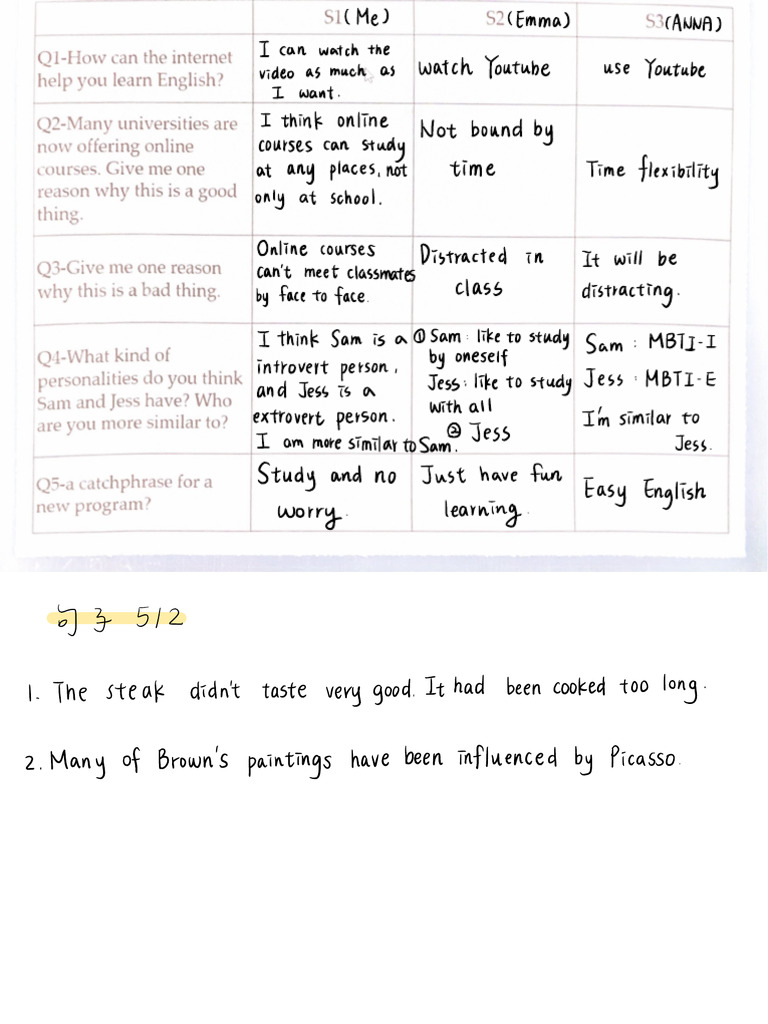 S1(Me) S2(Emma) S3(ANNA)
Q1-How can the internet
help you learn English?
I can watch the
video as much as
I want.
watch Youtube
use Youtube
Q2-Many universities are
now offering online
courses. Give me one
reason why this is a good
thing.
I think online
courses can study
at any places, not
only at school.
Not bound by
time
Time flexibility
Q3-Give me one reason
why this is a bad thing.
Online courses
can't meet classmates
by face to face.
Distracted in
class
It will be
distracting.
Q4-What kind of
personalities do you think
Sam and Jess have? Who
are you more similar to?
I think Sam is a
introvert person,
and Jess is a
extrovert person.
I am more similar to Sam.
① Sam : like to study
by oneself
Jess : like to study
with all
② Jess
Sam : MBTI-I
Jess : MBTI-E
I'm similar to
Jess.
Q5-a catchphrase for a
new program?
Study and no
worry.
Just have fun
learning.
Easy English
句子 5/2
1. The steak didn't taste very good. It had been cooked too long.
2. Many of Brown's paintings have been influenced by Picasso.